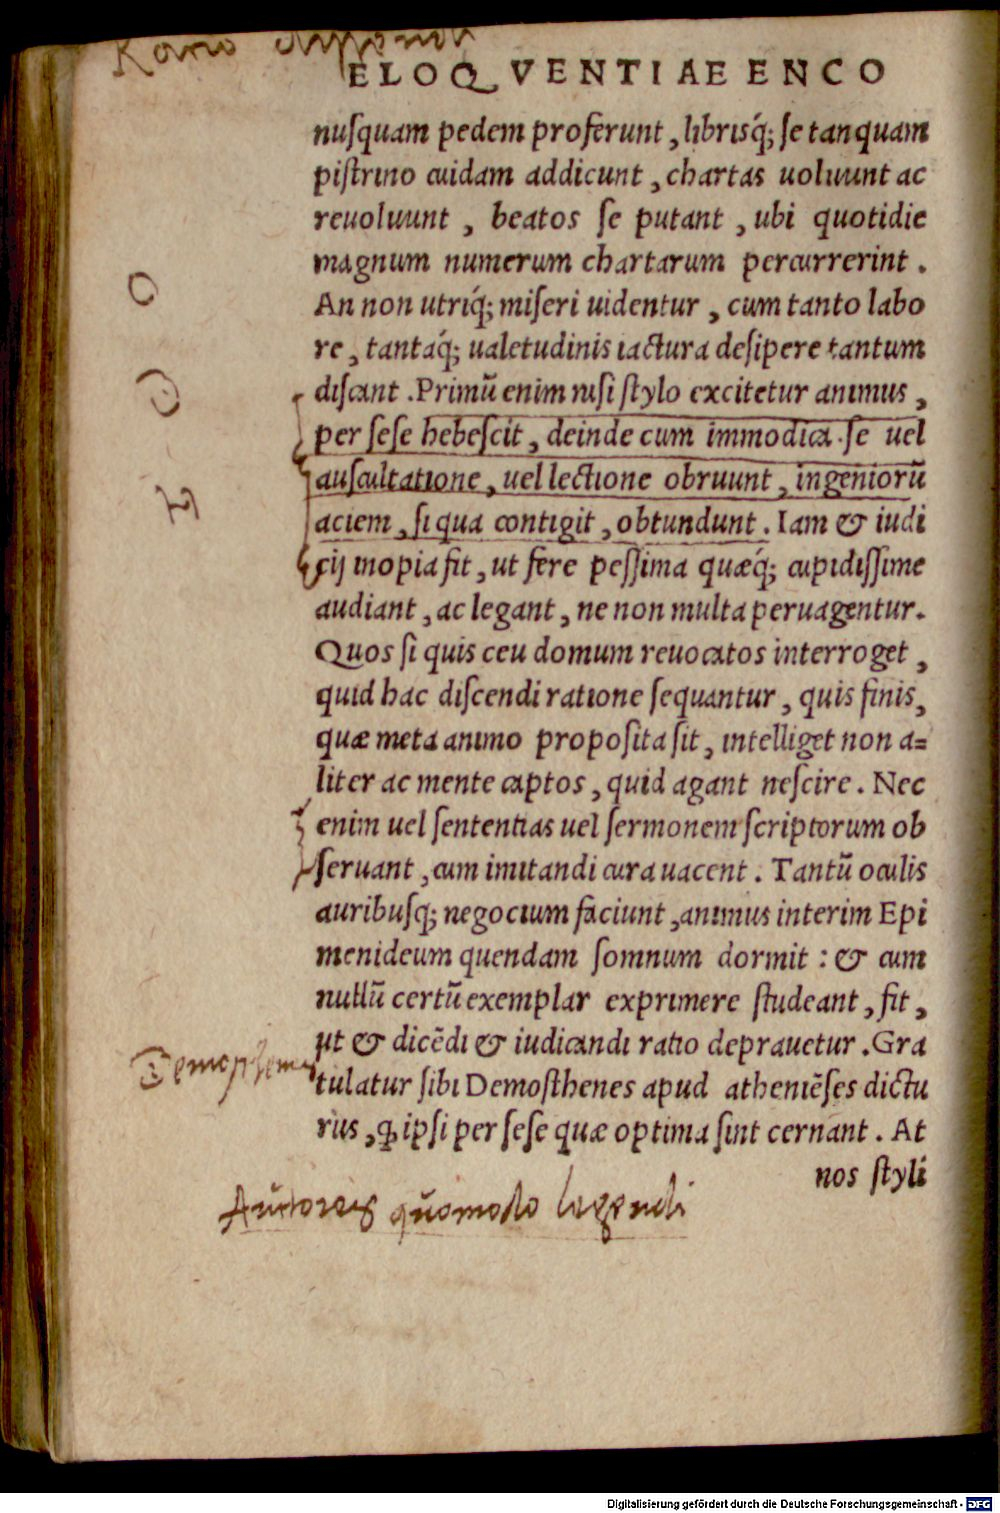 ELOQVENTIAE ENCO
nusquam pedem proferunt, librisq́; se tanquam
pistrino cuidam addicunt, chartas uoluunt ac
reuoluunt, beatos se putant, ubi quotidie
magnum numerum chartarum percurrerint.
An non utriq́; miseri uidentur, cum tanto labo
re, tantaq́; ualetudinis iactura desipere tantum
discant. Primū enim nisi stylo excitetur animus,
per sese hebescit, deinde cum immodica se uel
auscultatione, uel lectione obruunt, ingeniorū
aciem, si qua contigit, obtundunt. Iam & iudi
cij inopia fit, ut fere pessima quæq́; cupidissime
audiant, ac legant, ne non multa peruagentur.
Quos si quis ceu domum reuocatos interroget,
quid hac discendi ratione sequantur, quis finis,
quæ meta animo proposita sit, intelliget non a=
liter ac mente captos, quid agant nescire. Nec
enim uel sententias uel sermonem scriptorum ob
seruant, cum imitandi cura uacent. Tantū oculis
auribusq; negocium faciunt, animus interim Epi
menideum quendam somnum dormit: & cum
nullū certū exemplar exprimere studeant, fit,
ut & dicēdi & iudicandi ratio deprauetur. Gra
Demosthenes
tulatur sibi Demosthenes apud atheniēses dictu
rus, q ipsi per sese quæ optima sint cernant. At
nos styli
Autores quomodo legendi
Digitalisierung gefördert durch die Deutsche Forschungsgemeinschaft - DFG